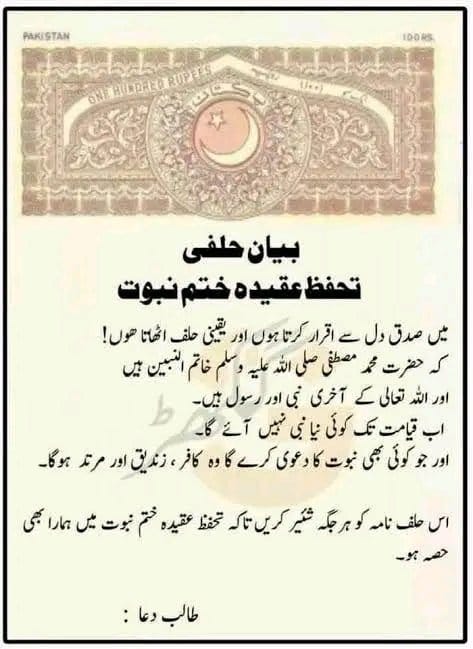 PAKISTAN 100 RS.
ONE HUNDRED RUPEES
پاکستان
بیان حلفی
تحفظ عقیدہ ختم نبوت
میں صدق دل سے اقرار کرتا ہوں اور یقینی حلف اٹھاتا ھوں!
کہ حضرت محمد مصطفی صلی اللہ علیہ وسلم خاتم النبین ہیں
اور اللہ تعالی کے آخری نبی اور رسول ہیں۔
اب قیامت تک کوئی نیا نبی نہیں آئے گا۔
اور جو کوئی بھی نبوت کا دعوی کرے گا وہ کافر، زندیق اور مرتد ہوگا۔
اس حلف نامہ کو ہر جگہ شئیر کریں تاکہ تحفظ عقیدہ ختم نبوت میں ہمارا بھی
حصہ ہو۔
طالب دعا :